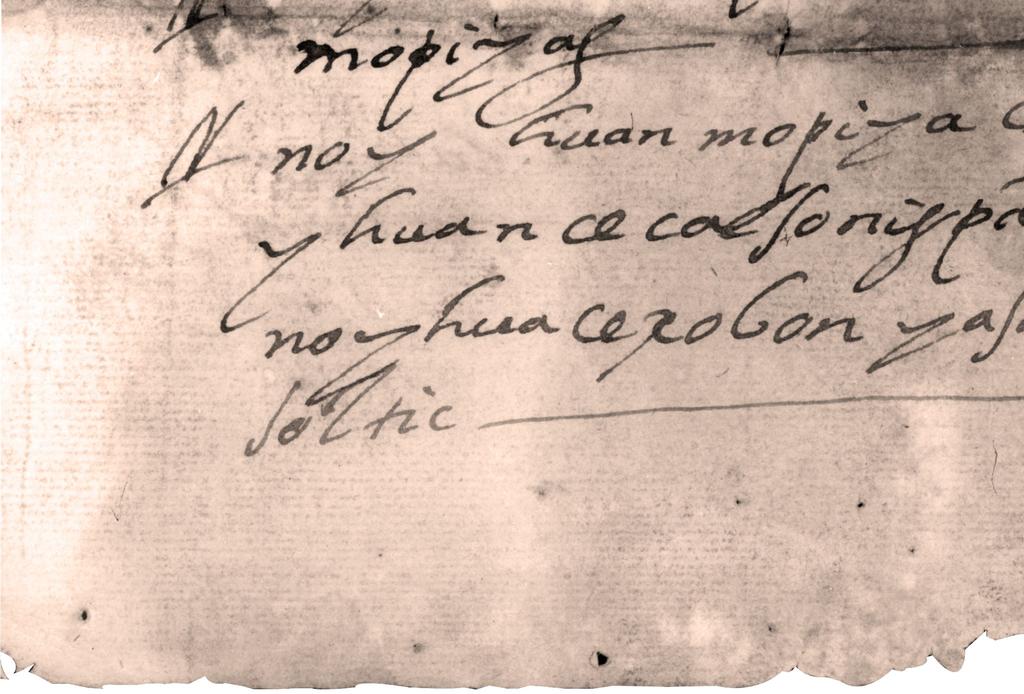 mopiyas
noy huan mopiya
yhuan ce calsonis pā
noyhua ce xobon yas
soltic